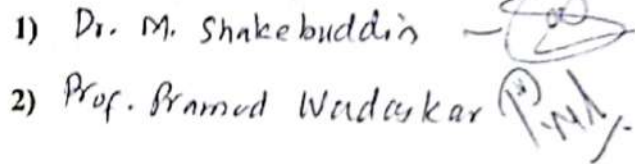 1) Dr. M. Shakebuddin
2) Prof. Pramod Wadaskar